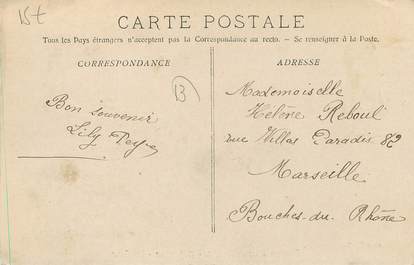 15t
CARTE POSTALE
Tous les Pays étrangers n'acceptent pas la Correspondance au recto. — Se renseigner à la Poste.
CORRESPONDANCE
ADRESSE
13
Bon souvenir
Lily
Mademoiselle
Hélène Reboul
rue Villas Paradis 82
Marseille
Bouches-du-Rhône